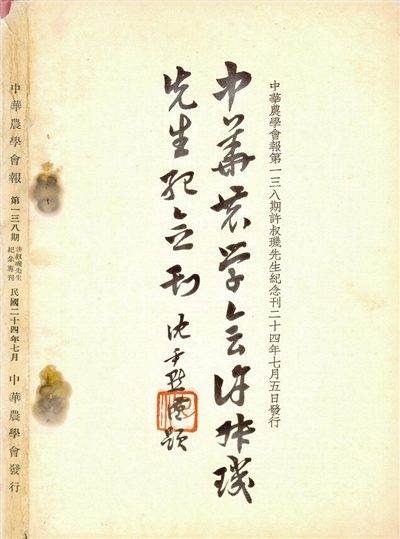 中華農學會報第一三八期許叔璣先生紀念刊二十四年七月五日發行
中華農学会許叔璣
先生紀念刊
沈尹默題
中華農學會報 第一三八期 許叔璣先生紀念專刊 民國二十四年七月 中華農學會發行